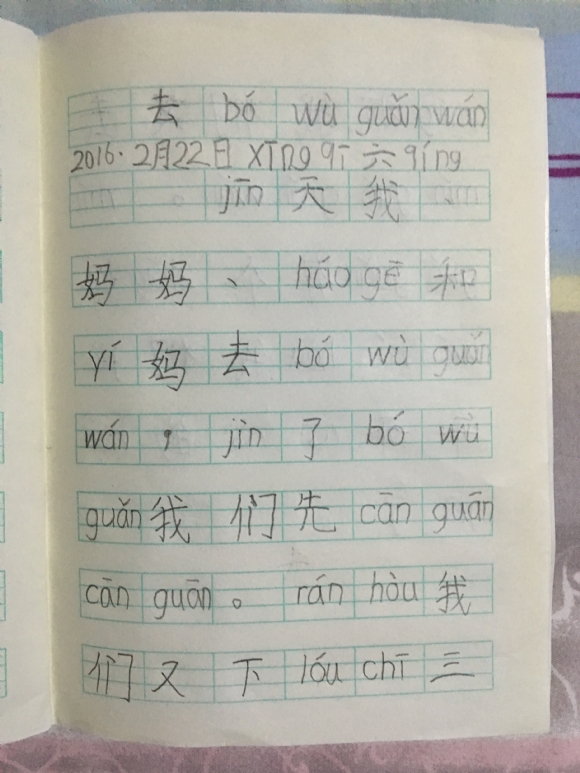 去 bó wù guǎn wán
2016.2月22日 xīng qī 六 qíng
jīn 天 我
妈 妈 、 háo gē 和
yí 妈 去 bó wù guǎn
wán , jìn 了 bó wù
guǎn 我 们 先 cān guān
cān guān 。 rán hòu 我
们 又 下 lóu chī 三